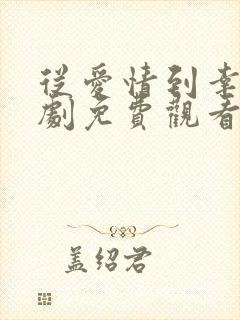 從愛情到幸
劇免費觀看
盖绍君